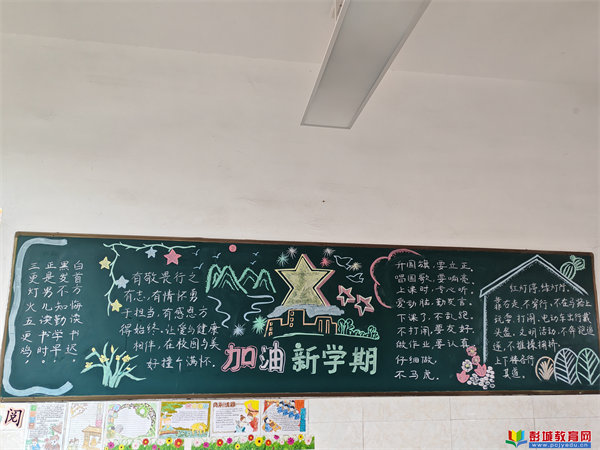 三更灯火五更鸡，
正是男儿读书时
黑发不知勤学早
白首方悔读书迟。
有敬畏行之
有志,有情怀勇
于担当,有感恩方
得始终,让爱与健康
相伴,在校园与美
好撞个满杯.
加油 新学期
升国旗,要立正,
唱国歌,要响亮.
上课时,专心听,
爱动脑,勤发言,
下课了,不乱跑,
不打闹,要友好,
做作业,要认真,
仔细做,
不马虎.
红灯停,绿灯行,
靠右走,不穿行,不在马路上
玩耍,打闹,电动车出行戴
头盔,文明活动,不奔跑追
逐,不推搡拥挤,
上下楼右行
阅
彭城教育网
www.pcjyedu.cn